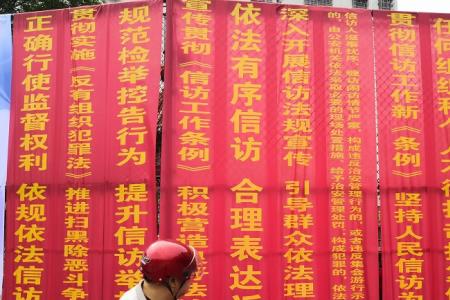 正确行使监督权利 依规依法信访
贯彻实施《反有组织犯罪法》 推进扫黑除恶斗争
规范检举控告行为 提升信访举
宣传贯彻《信访工作条例》 积极营造
依法有序信访 合理表达
深入开展信访法规宣传 引导群众依法理
信访人滋事扰序、缠访闹访情节严重，构成违反治安管理行为的，或者违反集会游行示
的，由公安机关依法采取必要的现场处置措施、给予治安管理处罚；构成犯罪的，依
贯彻信访工作新《条例》 坚持人民信访
任何